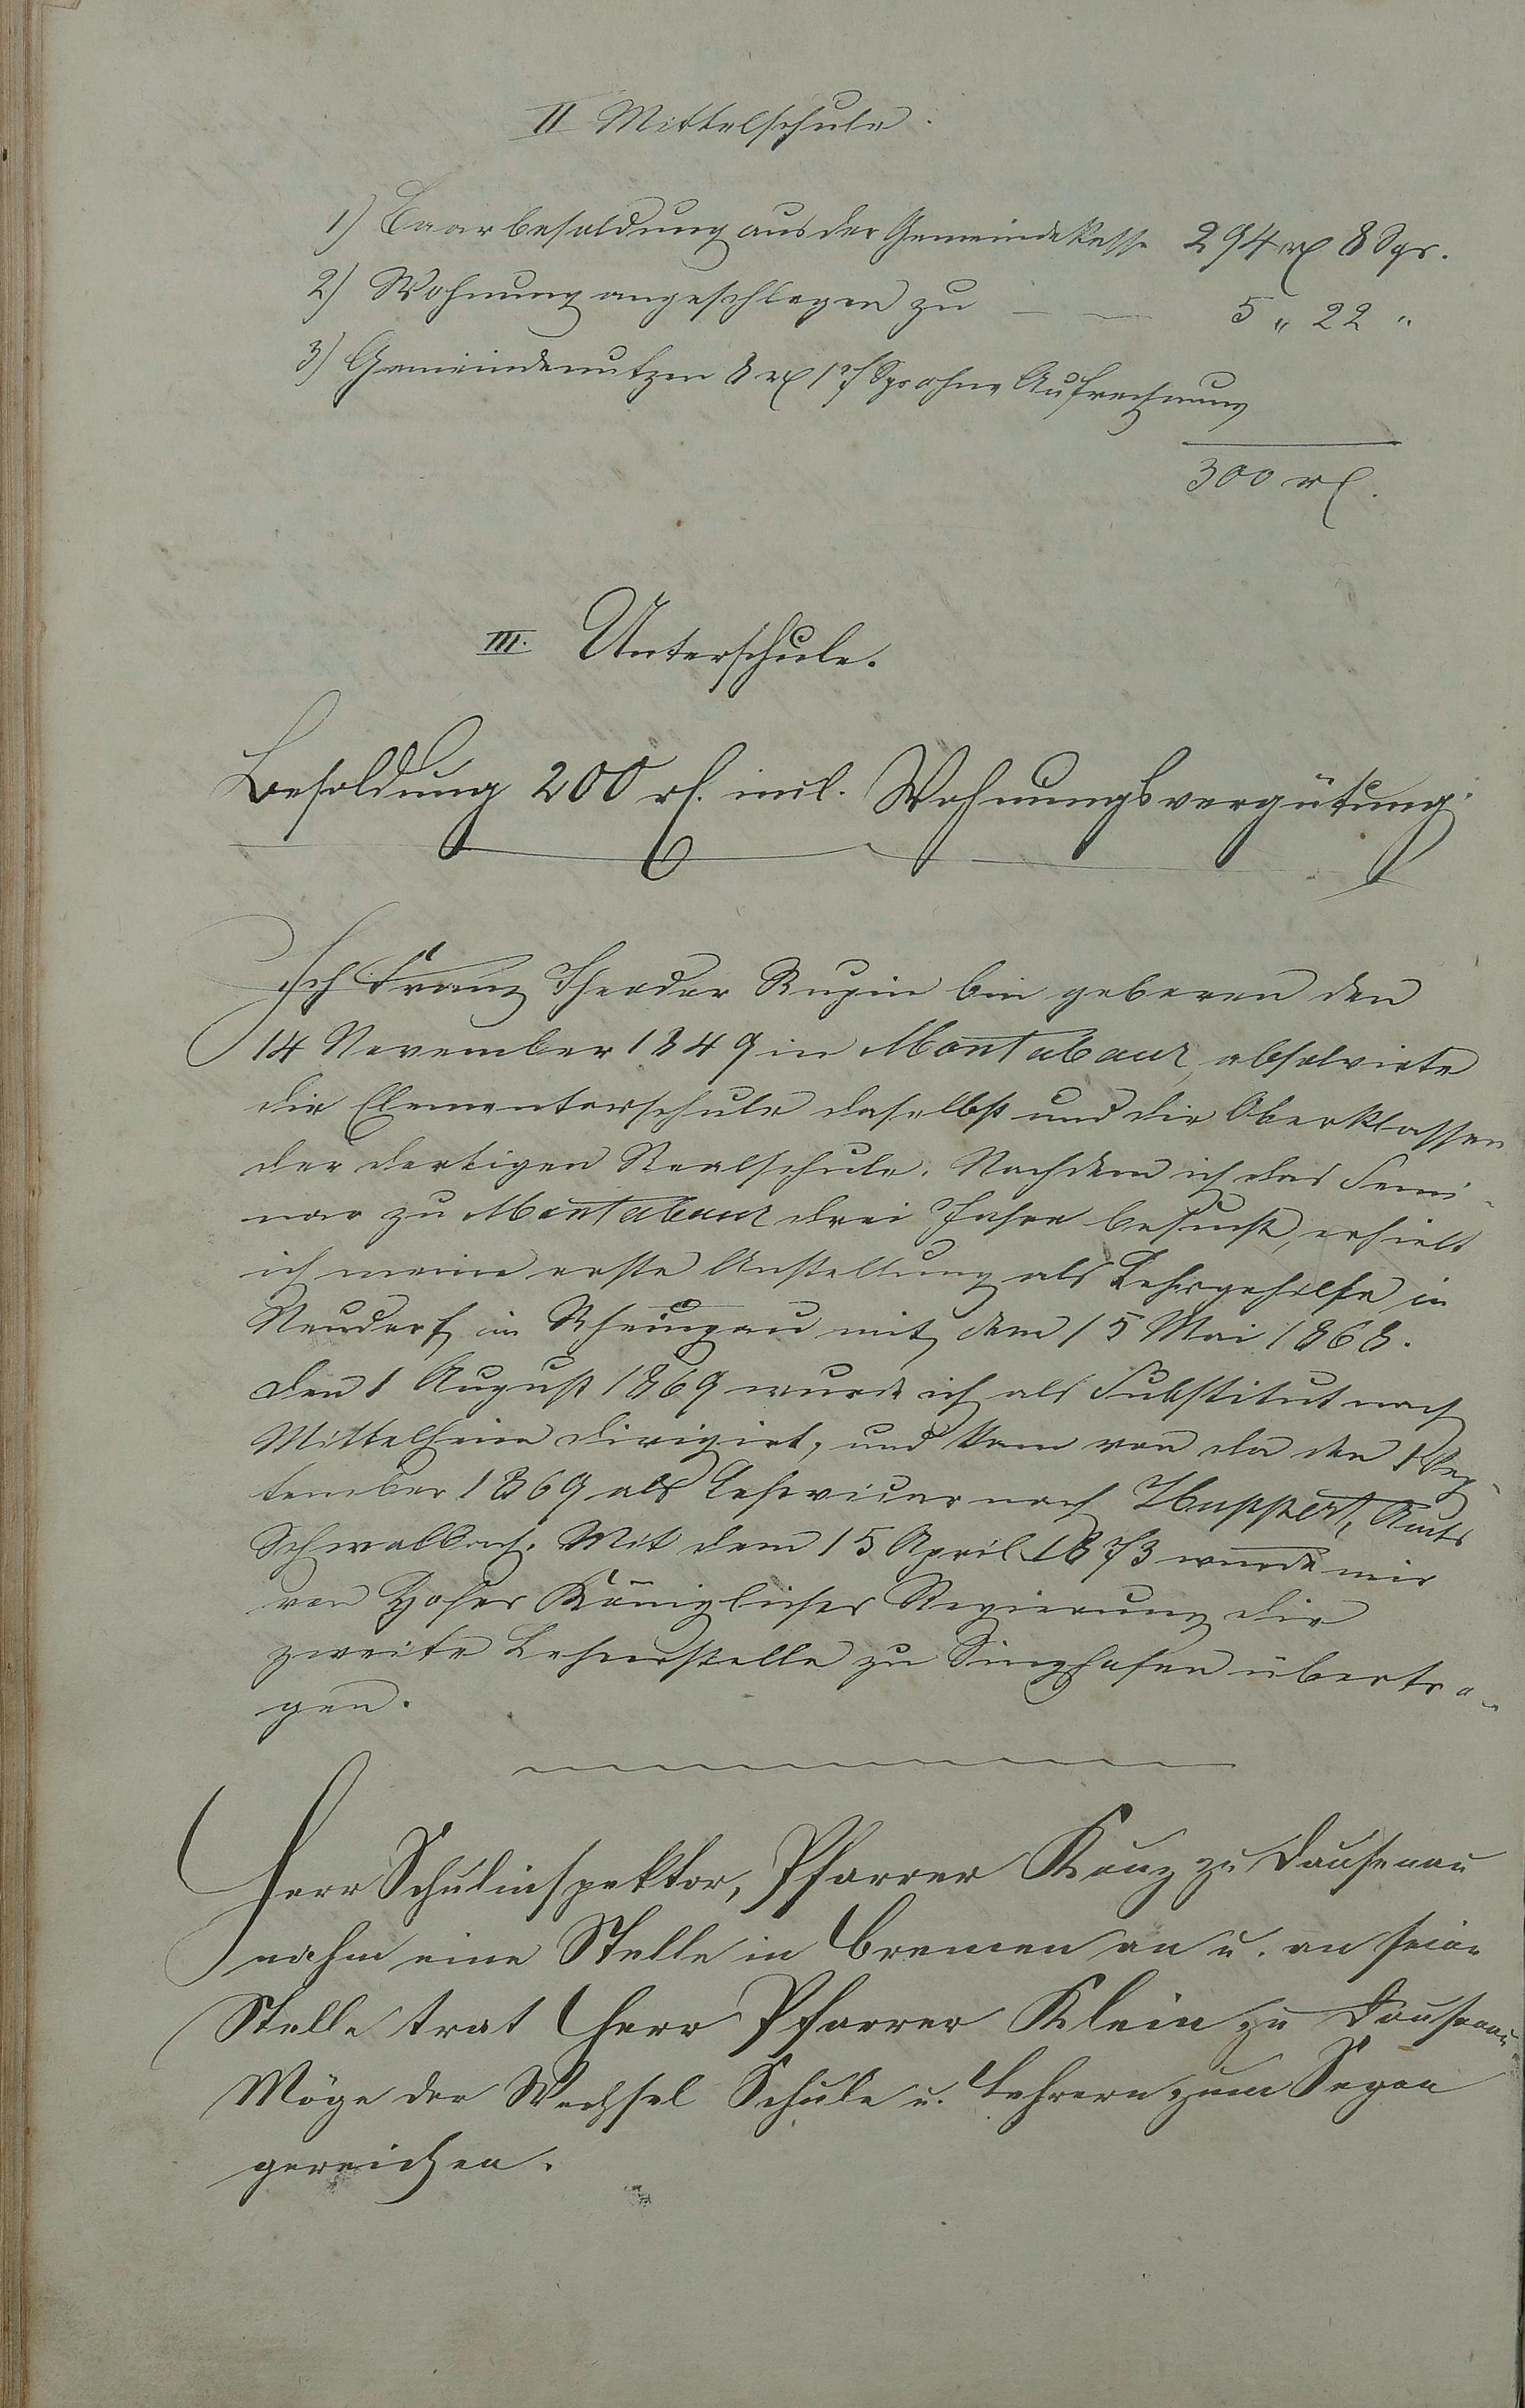 II Mittelschule.
1) Baarbesoldung aus der Gemeindekasse 294 rℓ 8 Sgr.
2) Wohnung angeschlagen zu — — 5 " 22 "
3) Gemeindenutzen 8 rℓ 17 Sgr ohne Aufrechnung
300 rℓ.
III. Unterschule.
Besoldung 200 rℓ. incl. Wohnungsvergütung.
Ich Franz Theodor Rupin bin geboren den
14 November 1849 in Montabaur, absolvirte
die Elementarschule daselbst und die Oberklassen
der dortigen Realschule. Nachdem ich das Semi-
nar zu Montabaur drei Jahre besucht, erhielt
ich meine erste Anstellung als Lehrgehilfe in
Neudorf im Rheingau mit dem 15 Mai 1868.
Den 1 August 1869 wurde ich als Substitut nach
Mittelheim dirigirt, und kam von da den 1 Sep-
tember 1869 als Lehrvicar nach Huppert, Amts
Schwalbach. Mit dem 15 April 1873 wurde mir
von Hoher Königlicher Regierung die
zweite Lehrerstelle zu Singhofen übertra-
gen.
Herr Schulinspektor, Pfarrer Kunz zu Dausenau
nahm eine Stelle in Bremen an u. an seine
Stelle trat Herr Pfarrer Klein zu Dausenau.
Möge der Wechsel Schule u. Lehrern zum Segen
gereichen.